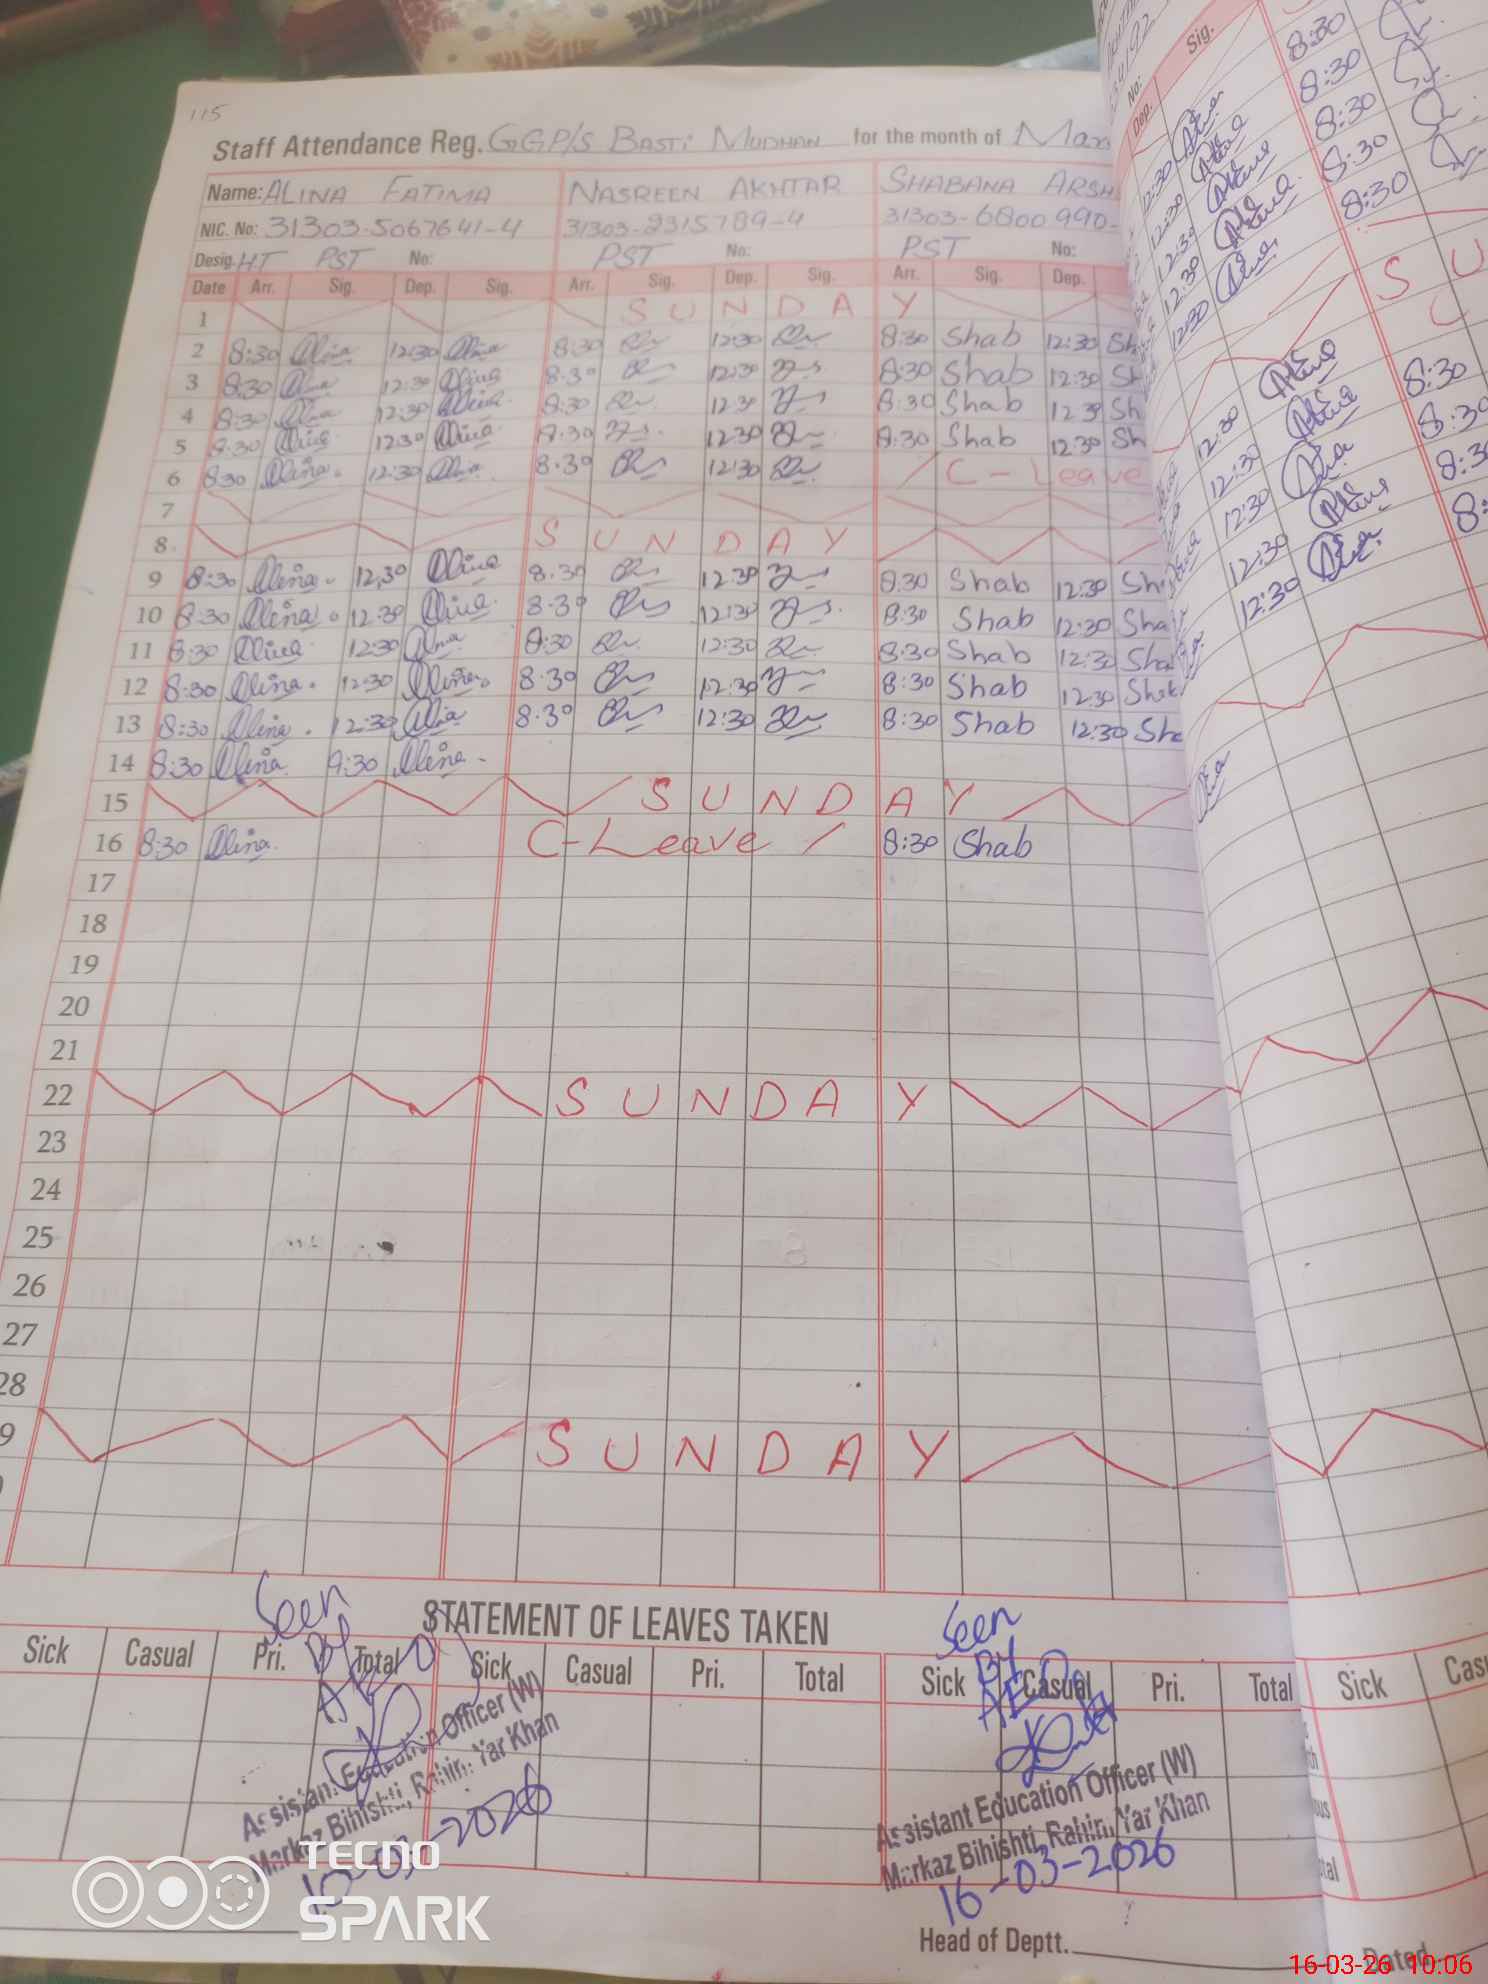 115
Staff Attendance Reg. GGP/S BASTi MUDHAN for the month of Mar
Name: ALINA FATIMA NASREEN AKHTAR SHABANA ARSH
NIC. No: 31303-5067641-4 31303-2315789-4 31303-6800990-
Desig. HT PST No: PST No: PST No:
Date Arr. Sig. Dep. Sig. Arr. Sig. Dep. Sig. Arr. Sig. Dep.
1 SUNDAY
2 8:30 Alina 12:30 Alina 8:30 12:30 8:30 Shab 12:30 Sh
3 8:30 Alina 12:30 Alina 8.30 12:30 8:30 Shab 12:30 Sh
4 8:30 Alina 12:30 Alina 8:30 12:30 8:30 Shab 12:30 Sh
5 8:30 Alina 12:30 Alina 8:30 12:30 8:30 Shab 12:30 Sh
6 8:30 Alina 12:30 Alina 8.30 12:30 C-Leave
7
8 SUNDAY
9 8:30 Alina 12:30 Alina 8.30 12:30 8:30 Shab 12:30 Sh
10 8:30 Alina 12:30 Alina 8.30 12:30 8:30 Shab 12:30 Sha
11 8:30 Alina 12:30 Alina 8:30 12:30 8:30 Shab 12:30 Sha
12 8:30 Alina 12:30 Alina 8.30 12:30 8:30 Shab 12:30 Shab
13 8:30 Alina 12:30 Alina 8.30 12:30 8:30 Shab 12:30 Sha
14 8:30 Alina 9:30 Alina
15 SUNDAY
16 8:30 Alina C-Leave 8:30 Shab
17
18
19
20
21
22 SUNDAY
23
24
25
26
27
28
9 SUNDAY
STATEMENT OF LEAVES TAKEN
Sick Casual Pri. Total Sick Casual Pri. Total Sick Casual Pri. Total
Seen
By
AEO
Assistant Education Officer (W)
Markaz Bihishti, Rahim Yar Khan
-03-2026
Seen
By
AEO
Assistant Education Officer (W)
Markaz Bihishti, Rahim Yar Khan
16-03-2026
Head of Deptt.
No:
Dep. Sig.
12:30 Alina 8:30
12:30 Alina 8:30
12:30 Alina 8:30
12:30 Alina 8:30
12:30 Alina 8:30
SU
12:30 Alina 8:30
12:30 Alina 8:30
12:30 Alina 8:30
12:30 Alina 8:
12:30 Alina
Sick Cas
Dated
TECNO
SPARK
16-03-26 10:06